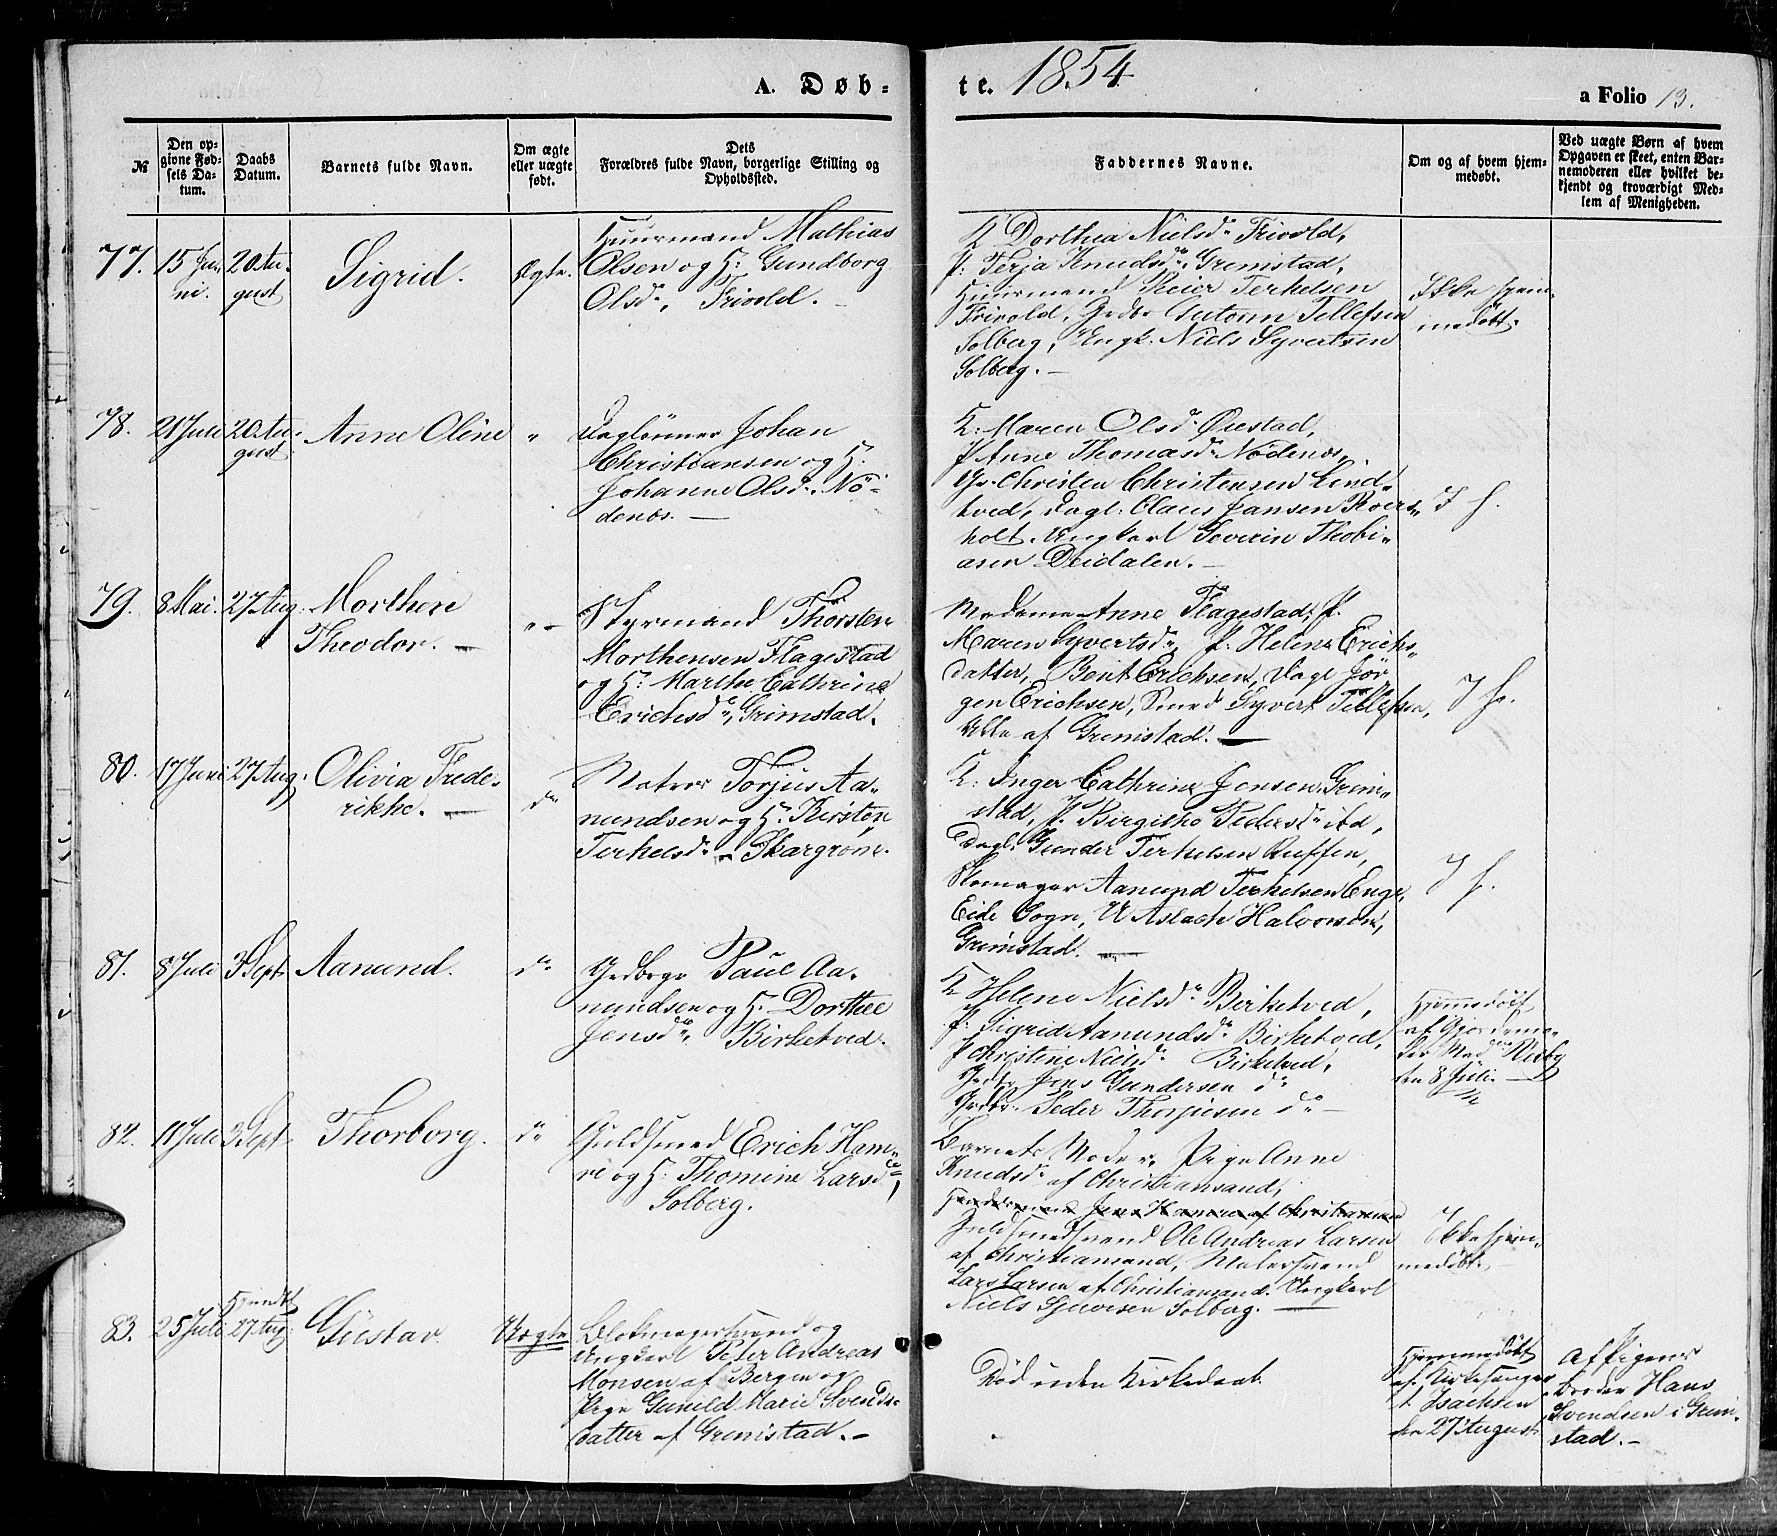 A. Døb-
te. 1854
a Folio 13.
№
Den op-
givne Fød-
sels Da-
tum.
Daabs
Datum.
Barnets fulde Navn.
Om ægte
eller uægte
født.
Dets
Forældres fulde Navn, borgerlige Stilling og
Opholdssted.
Faddernes Navne.
Om og af hvem hjem-
medøbt.
Ved uægte Børn af hvem
Opgaven er skeet, enten Bar-
nemoderen eller hvilket be-
kjendt og troværdigt Med-
lem af Menigheden.
77.
15 Ju-
ni.
20 Au-
gust
Sigrid.
Ægte.
Huusmand Mathias
Olsen og H: Gundborg
Olsdr, Frivold. -
K Dorthea Nielsdr Frivold,
P: Terja Knudsdr. Grimstad,
Huusmand Reier Terkelsen
Frivold, Grdbr Gutorm Tellefsen
Solberg, Ungk. Niels Syvertsen
Solberg. -
Ikke hjem-
medøbt.
78.
21 Juli
20 Au-
gust
Anne Oline
"
Daglønner Johan
Christiansen og H:
Johanne Olsdr. Nö-
denæs. -
K: Maren Olsdr Øiestad,
P Anne Thomasdr Nödenæs,
Gr. Christen Christensen Lind-
tved, Dagl: Claus Jansen Roers-
holt. Ungkarl Severin Thobi-
asen Deidalen. -
I h.
79.
8 Mai.
27 Aug.
Morthen
Theodor. -
" -
Styrmand Thorsten
Morthensen Flagestad
og H: Marthe Cathrine
Erichsdr, Grimstad.
Madame Anne Flagestad, P.
Maren Syvertsdr, P: Helene Erichs-
datter, Bent Erichsen, Dagl Jör-
gen Erichsen, Smed Syvert Tellefsen,
Alle af Grimstad. -
I h.
80.
17 Juni
27 Aug.
Olivia Frede-
rikke. -
do
Matros Torjus Aa-
nundsen og H. Kirsten
Terkelsdr - Skargrøne.
K. Inger Cathrine Jensen Grim-
stad, P. Birgithe Pedersdr ibd,
Dagl. Gunder Terkelsen Ruffen,
Skomager Aanund Terkelsen Enge,
Eide Sogn, U Aslach Halvorsen,
Grimstad. -
I h.
81.
8 Juli
3 Sept
Aanund.
do
Grdbrgr Paul Aa-
nundsen og H. Dorthee
Jensdr, Birketved.
K Helene Nielsdr Birketved,
P. Sigrid Aanundsdr Birketved,
P Christine Nielsdr Birketved,
Grdbr Jens Gundersen do
Grdbr. Peder Thorjusen do -
Hjemmedöbt
af Gjordemo-
der Madme Risby
den 8 Juli. -
82.
11 Juli
3 Sept
Thorborg.
do
Guldsmed Erich Ham-
re og H: Thomine Larsdr,
Solberg.
Barnets Moder, Pige Anne
Knudsdr af Christiansand,
Handelsmand Jens Hamre af Christiansand
Guldsmedsvend Ole Andreas Larsen
af Christiansand, Malersvend
Lars Larsen af Christiansand. Ungkarl
Niels Sjuvesen Solberg. -
Ikke hjem-
medöbt. -
83.
25 Juli
Hjemdt
27 Aug
Gustav
Uægte
Blokmagersvend og
Ungkarl Peter Andreas
Monsen af Bergen og
Pige Gunild Marie Svends-
datter af Grimstad. -
Død uden Kirkedaab
Hjemmedöbt
af Kirkesanger
Isachsen
den 27 August
Af Pigens
Broder Hans
Svendsen i Grim-
stad. -